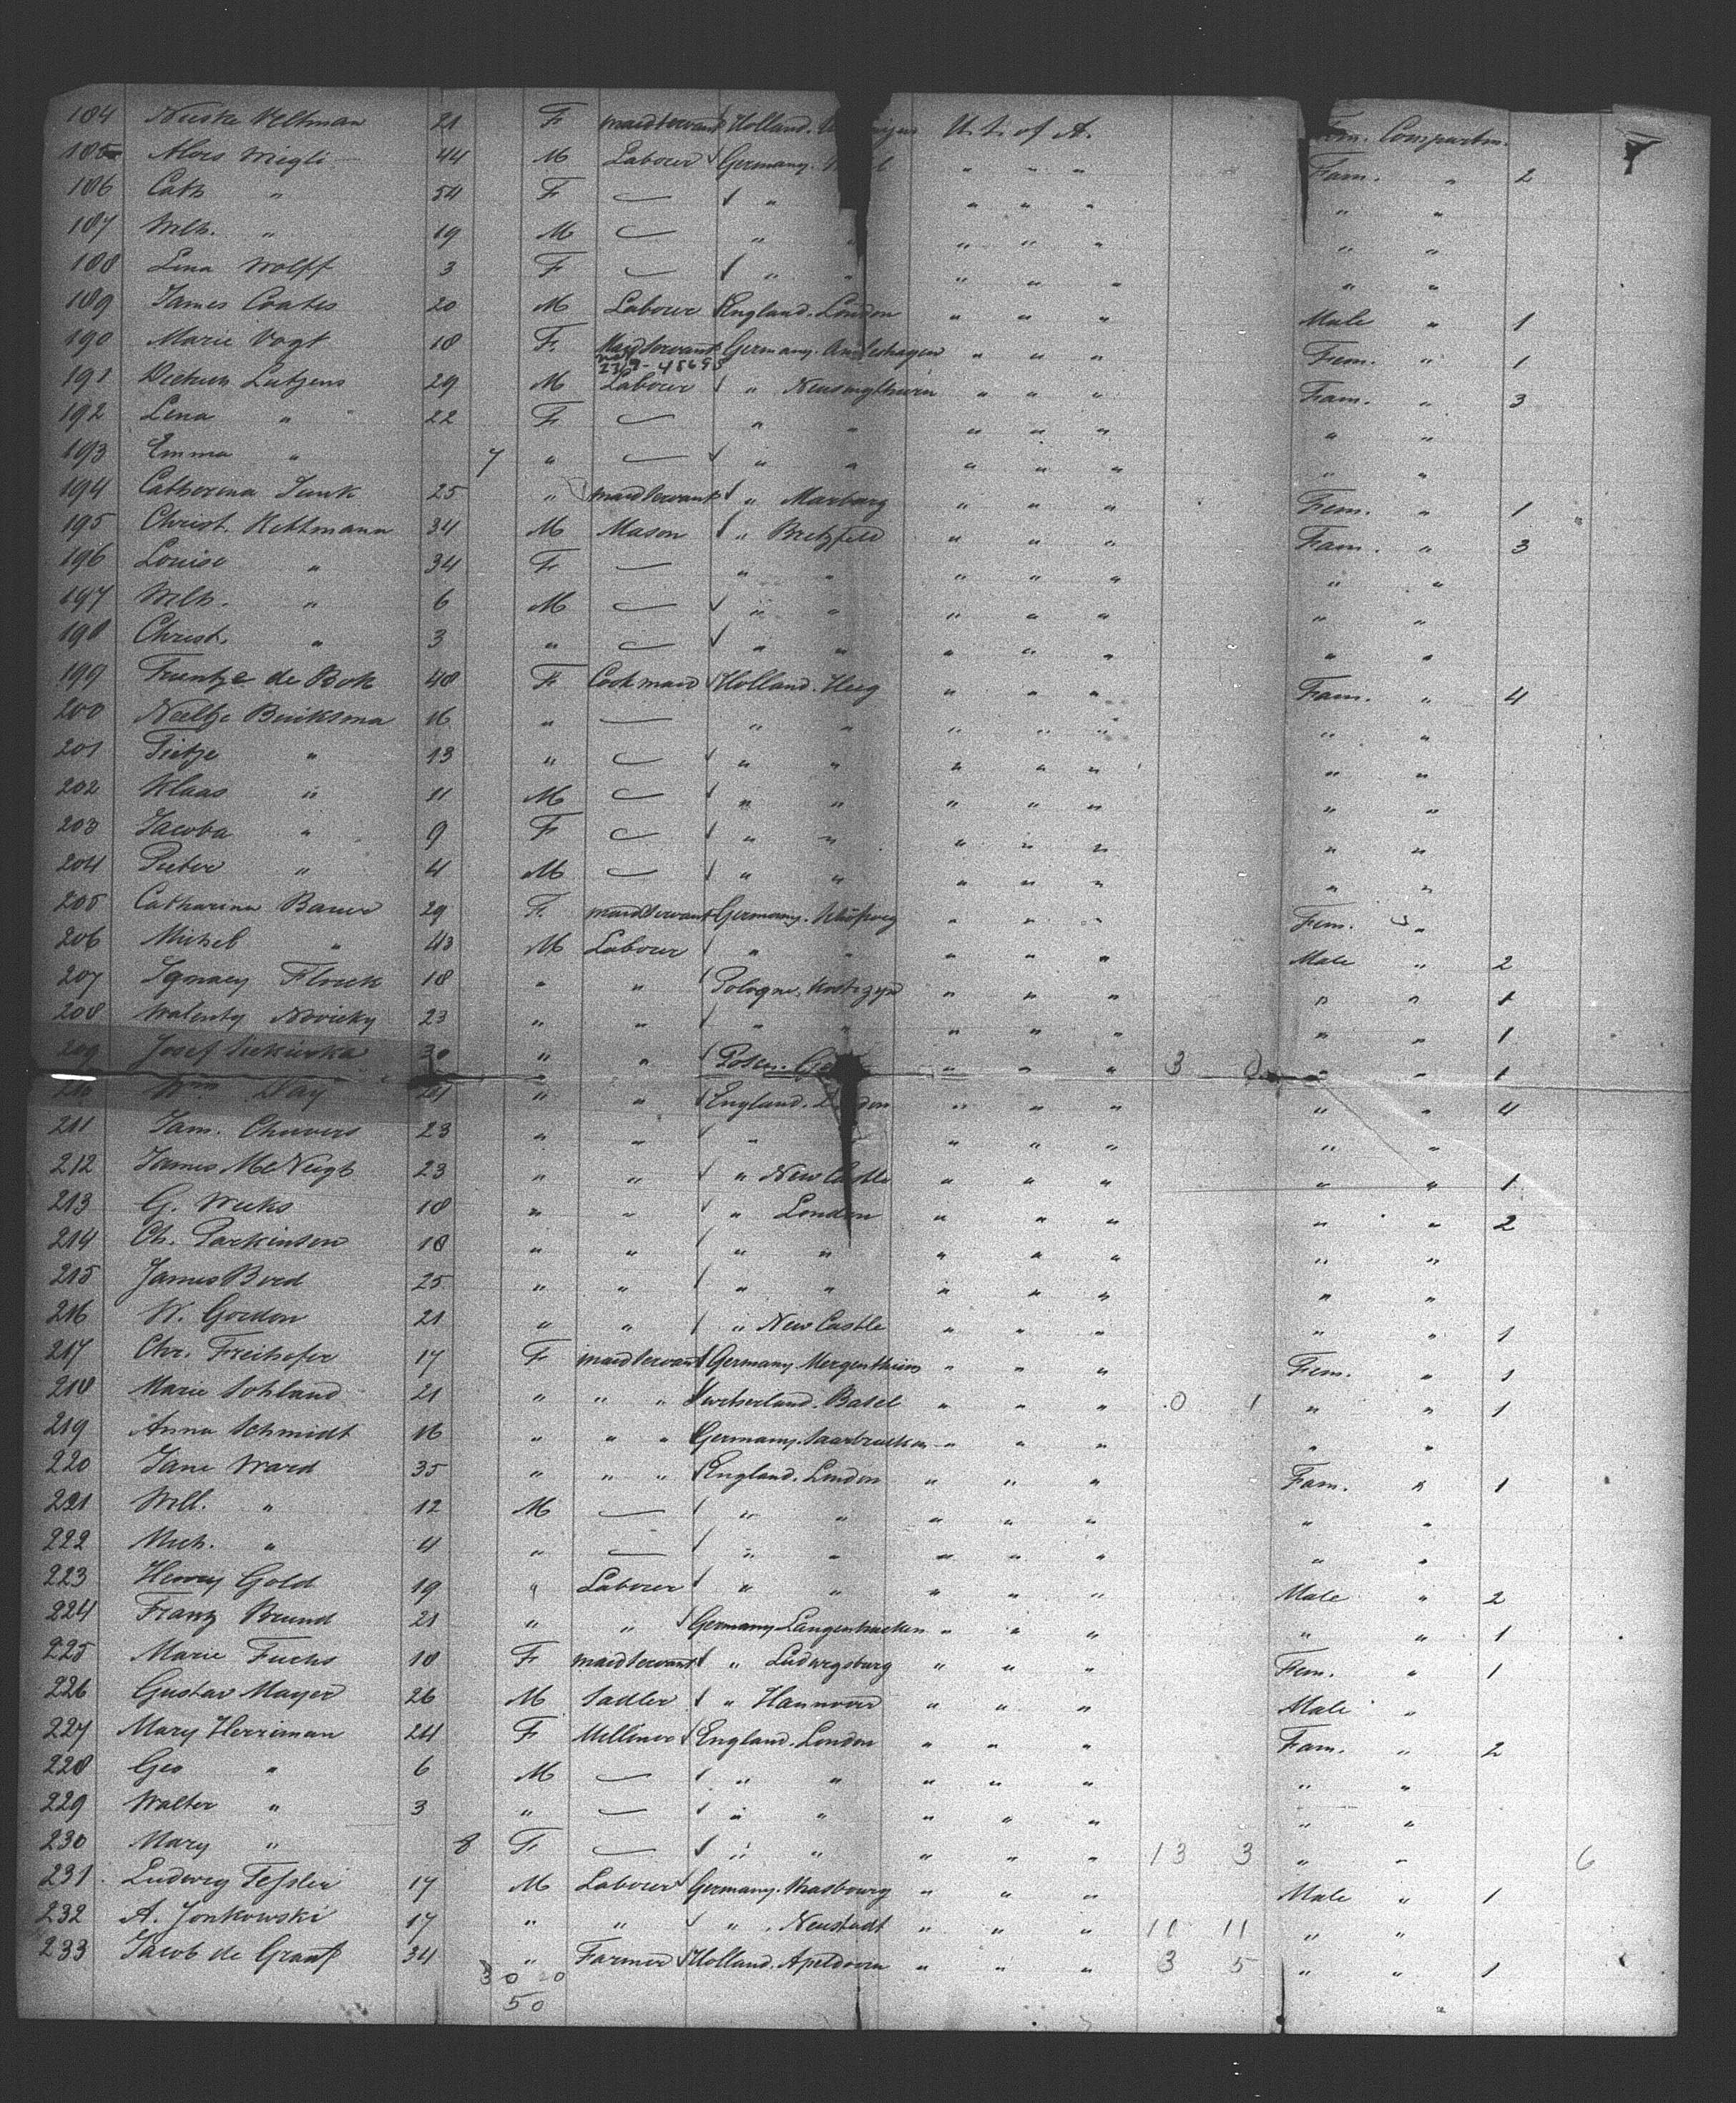 184 Nieske Veltman 21 F maidservant Holland. U. S. of A. Fem. Compartm.
185 Alois Wigli 44 M Labourer Germany. " " " Fam. " 2
186 Cath " 54 F — " " " " " "
187 Wilh. " 19 M — " " " " " " "
188 Lina Wolff 3 F — " " " " " " "
189 James Coates 20 M Labourer England. London " " " Male " 1
190 Marie Vogt 18 F. Maidservant Germany. " " " Fem. " 1
191 Lutjens 29 M Labourer " " " " Fam. " 3
192 Lena " 22 F — " " " " " " "
193 Emma " 7 " — " " " " " " "
194 Catherina Junk 25 " maidservant " Marburg " " " Fem. " 1
195 Christ. Kettmann 34 M Mason " Bretzfeld " " " Fam. " 3
196 Louise " 34 F — " " " " " " "
197 Wilh. " 6 M — " " " " " " "
198 Christ. " 3 " — " " " " " " "
199 de Bok 48 F Cookmaid Holland. Heeg " " " Fam. " 4
200 Neeltje Buiksma 16 " — " " " " " " "
201 Tietje " 13 " — " " " " " " "
202 Klaas " 11 M — " " " " " " "
203 Jacoba " 9 F — " " " " " " "
204 Pieter " 4 M — " " " " " " "
205 Catharina Bauer 29 F. maidservant Germany. " " " Fem. "
206 Michel " 43 M Labourer " " " " " Male " 2
207 Ignacy Florek 18 " " Pologne. Kostrzyn " " " " " 1
208 Walenty Novicky 23 " " " " " " " " " 1
209 Josef 30 " " Posen. " " " 3 0 " " 1
Wm. Day " " England. London " " " " " 4
211 Jam. Chuvers 23 " " " " " " " "
212 James McVeigt 23 " " " New Castle " " " " " 1
213 G. Weeks 18 " " " London " " " " " 2
214 Ch. Parkinson 18 " " " " " " " " "
215 James Bird 25 " " " " " " " " "
216 W. Gordon 21 " " " New Castle " " " " " 1
217 Chr. Freihofer 17 F maidservant Germany. Mergentheim " " " Fem. " 1
218 Marie Sohland 21 " " " Switserland. Basel " " " 0 1 " " 1
219 Anna Schmidt 16 " " " Germany. Saarbrucken " " " " "
220 Jane Ward 35 " " " England. London " " " Fam. " 1
221 Will. " 12 M — " " " " " " "
222 Mich. " 4 " — " " " " " " "
223 Henry Gold 19 " Labourer " " " " " Male " 2
224 Franz Brund 21 " " Germany. Langenbrucken " " " " " 1
225 Marie Fuchs 18 F maidservant " Ludwigsburg " " " Fem. " 1
226 Gustav Mayer 26 M Sadler " Hannover " " " Male "
227 Mary Herriman 24 F Milliner England. London " " " Fam. " 2
228 Geo " 6 M — " " " " " " "
229 Walter " 3 " — " " " " " " "
230 Mary " 8 F — " " " " " 13 3 " " 6
231. Ludwig Fessler 17 M Labourer Germany. Strasbourg " " " Male " 1
232 A. Jonkowski 17 " " " Neustadt " " " 11 11 " "
233 Jacob de Graaf 34 " Farmer Holland. Apeldoorn " " " 3 5 " " 1
30 20
50